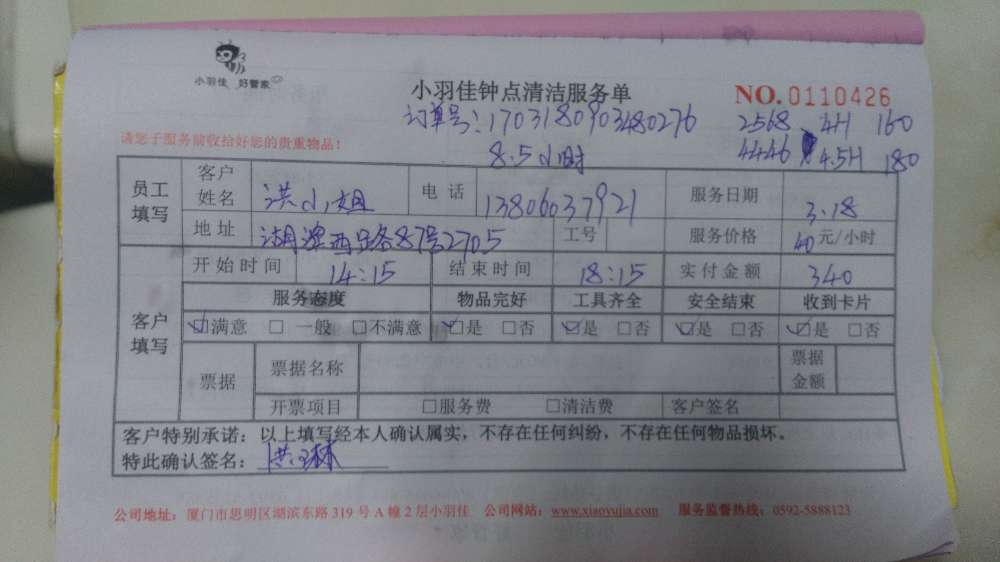 小羽佳 好管家
小羽佳钟点清洁服务单
NO.0110426
订单号:1703180903480276 2568 4H 160
请您于服务前收给好您的贵重物品!
8.5小时 4446 4.5H 180
员工填写 客户姓名 洪小姐 电话 13806037921 服务日期 3.18
地址 湖滨西路87号2705 工号 服务价格 40元/小时
客户填写 开始时间 14:15 结束时间 18:15 实付金额 340
服务态度 物品完好 工具齐全 安全结束 收到卡片
☑满意 □ 一般 □不满意 ☑是 □否 ☑是 □否 ☑是 □否 ☑是 □否
票据 票据名称 票据金额
开票项目 □服务费 □清洁费 客户签名
客户特别承诺:以上填写经本人确认属实,不存在任何纠纷,不存在任何物品损坏。
特此确认签名:洪琳
公司地址:厦门市思明区湖滨东路 319 号 A 幢 2 层小羽佳 公司网站:www.xiaoyujia.com 服务监督热线:0592-5888123